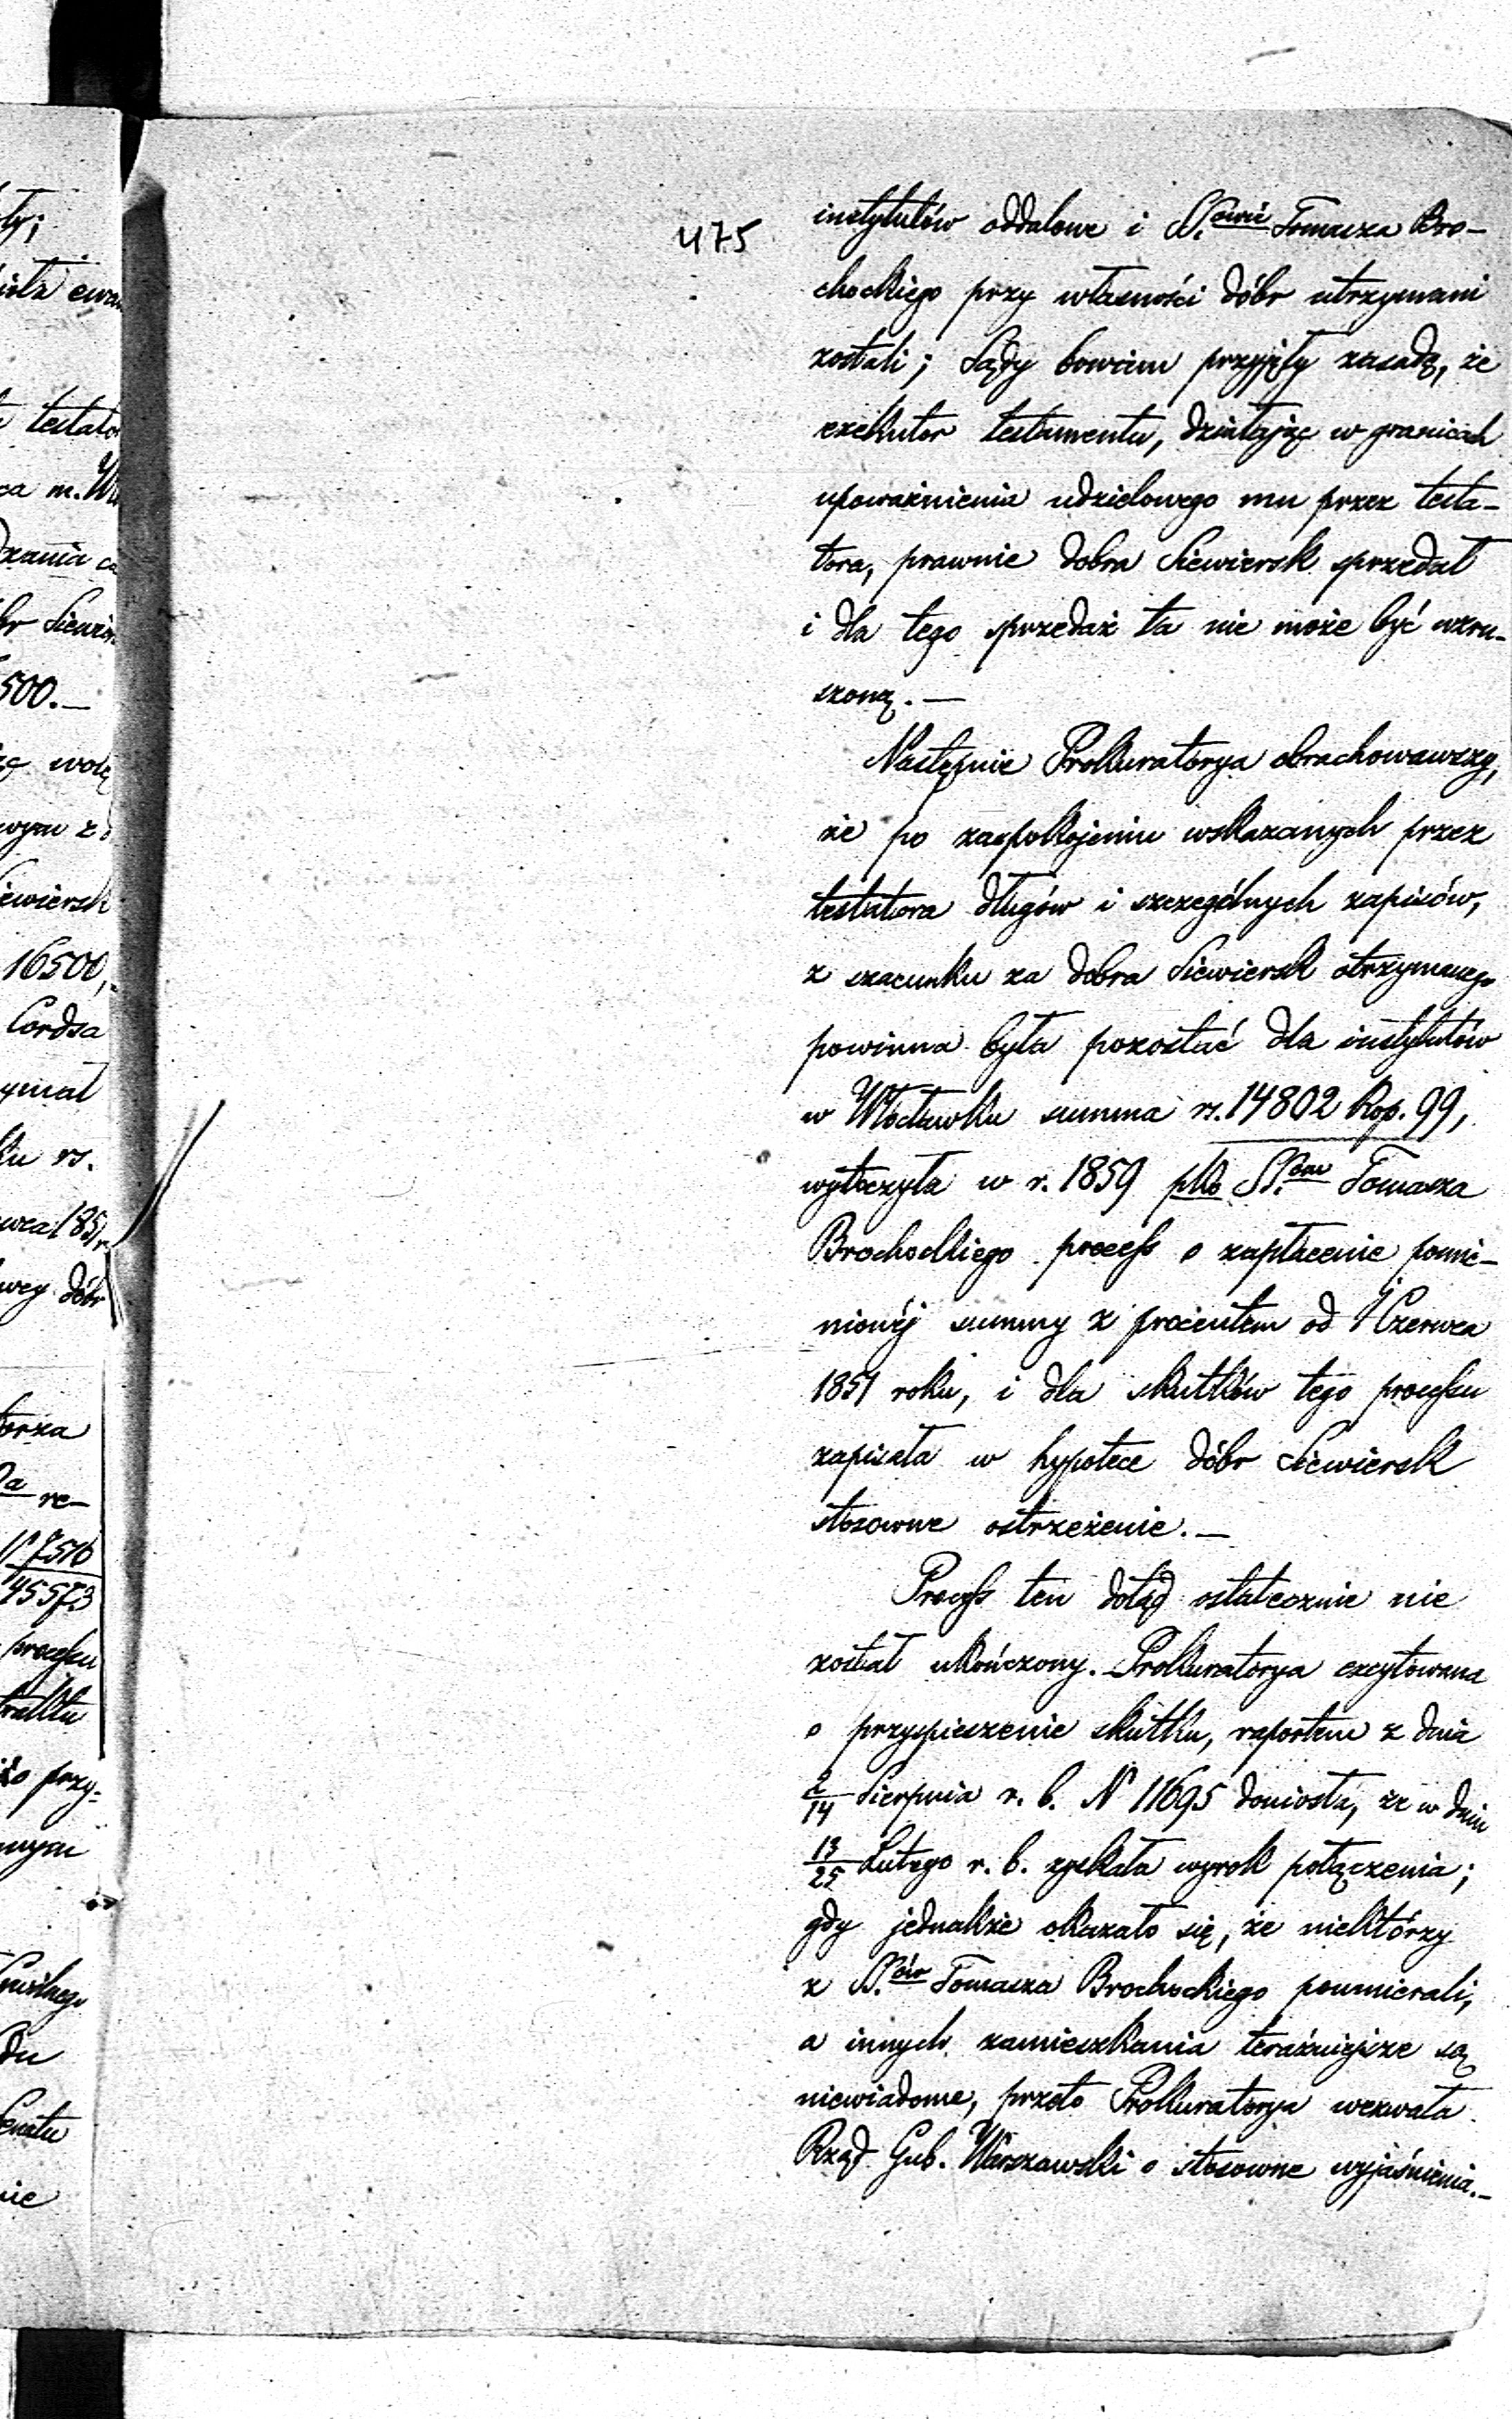 475
instytutów oddalone i S.owie Tomasza Bro-
chockiego przy własności dóbr utrzymani
zostali; Sądy bowiem przyjęły zasadę, że
exekutor testamentu, działając w granicach
upoważnienia udzielonego mu przez testa-
tora, prawnie dobra Siewiersk sprzedał
i dla tego sprzedaż ta nie może być wzru-
szoną. —
Następnie Prokuratorya obrachowawszy,
że po zaspokojeniu wskazanych przez
testatora długów i szczególnych zapisów,
z szacunku za dobra Siewiersk otrzymanego
powinna była pozostać dla instytutów
w Włocławku summa rs. 14802 kop. 99,
wytoczyła w r. 1859 pko S.om Tomasza
Brochockiego process o zapłacenie pomie-
nionéj summy z procentem od 1 Czerwca
1851 roku, i dla skutków tego processu
zapisała w hypotece dóbr Siewiersk
stosowne ostrzeżenie. —
Process ten dotąd ostatecznie nie
został ukończony. Prokuratorya excytowana
o przyspieszenie skutku, raportem z dnia
2/14 Sierpnia r. b. N 11695 doniosła, że w dniu
13/25 Lutego r. b. zyskała wyrok połączenia;
gdy jednakże okazało się, że niektórzy
z S.ów Tomasza Brochockiego poumierali,
a innych zamieszkania teraźniejsze są
niewiadome, przeto Prokuratorya wezwała
Rząd Gub. Warszawski o stosowne wyjaśnienia. —